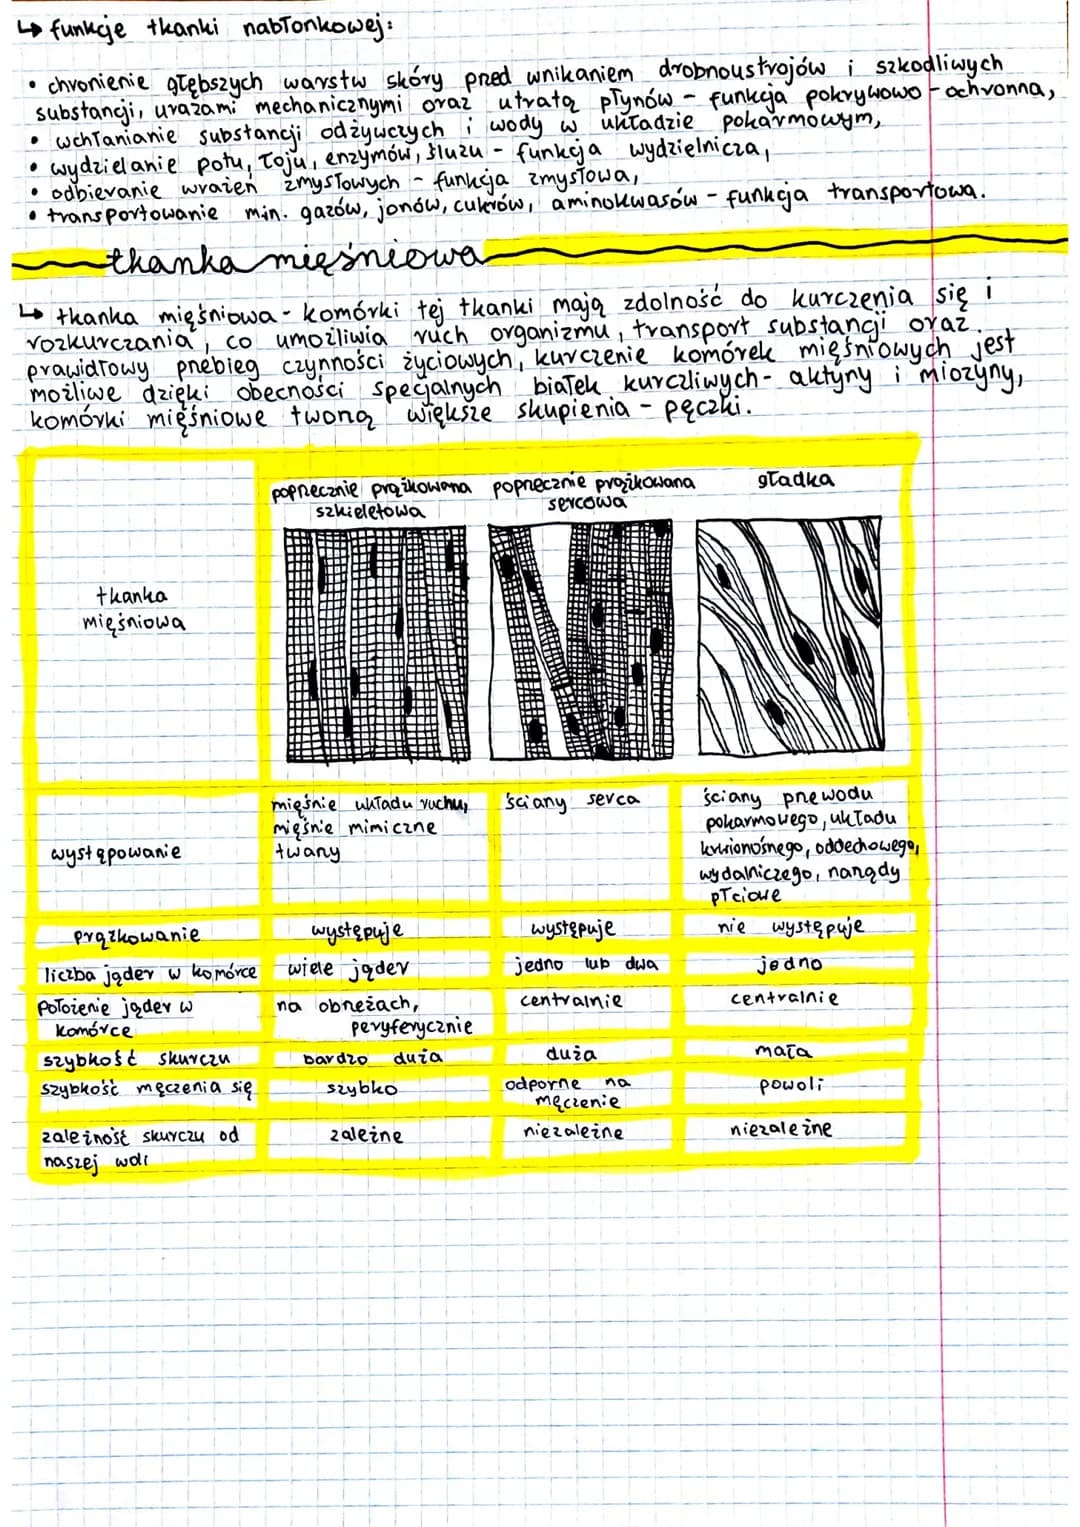 ↳ funkcje tkanki nabłonkowej:
• chronienie głębszych warstw skóry przed wnikaniem drobnoustrojów i szkodliwych
substancji, urazami mechanicznymi oraz utratą płynów - funkcja pokrywowo-ochronna,
• wchłanianie substancji odżywczych i wody w układzie pokarmowym,
• wydzielanie potu, łoju, enzymów, śluzu - funkcja wydzielnicza,
• odbieranie wrażeń zmysłowych - funkcja zmysłowa,
• transportowanie min. gazów, jonów, cukrów, aminokwasów - funkcja transportowa.
tkanka mięśniowa
↳ tkanka mięśniowa - komórki tej tkanki mają zdolność do kurczenia się i
rozkurczania, co umożliwia ruch organizmu, transport substancji oraz
prawidłowy przebieg czynności życiowych, kurczenie komórek mięśniowych jest
możliwe dzięki obecności specjalnych białek kurczliwych - aktyny i miozyny,
komórki mięśniowe tworzą większe skupienia - pęczki.
tkanka
mięśniowa
poprzecznie prążkowana
szkieletowa
poprzecznie prążkowana
sercowa
gładka
występowanie
mięśnie układu ruchu,
mięśnie mimiczne
twarzy
ściany serca
ściany przewodu
pokarmowego, układu
krwionośnego, oddechowego,
wydalniczego, narządy
płciowe
prążkowanie
występuje
występuje
nie występuje
liczba jąder w komórce
wiele jąder
jedno lub dwa
jedno
położenie jąder w
komórce
na obrzeżach,
peryferycznie
centralnie
centralnie
szybkość skurczu
bardzo duża
duża
mała
szybkość męczenia się
szybko
odporne na
męczenie
powoli
zależność skurczu od
naszej woli
zależne
niezależne
niezależne